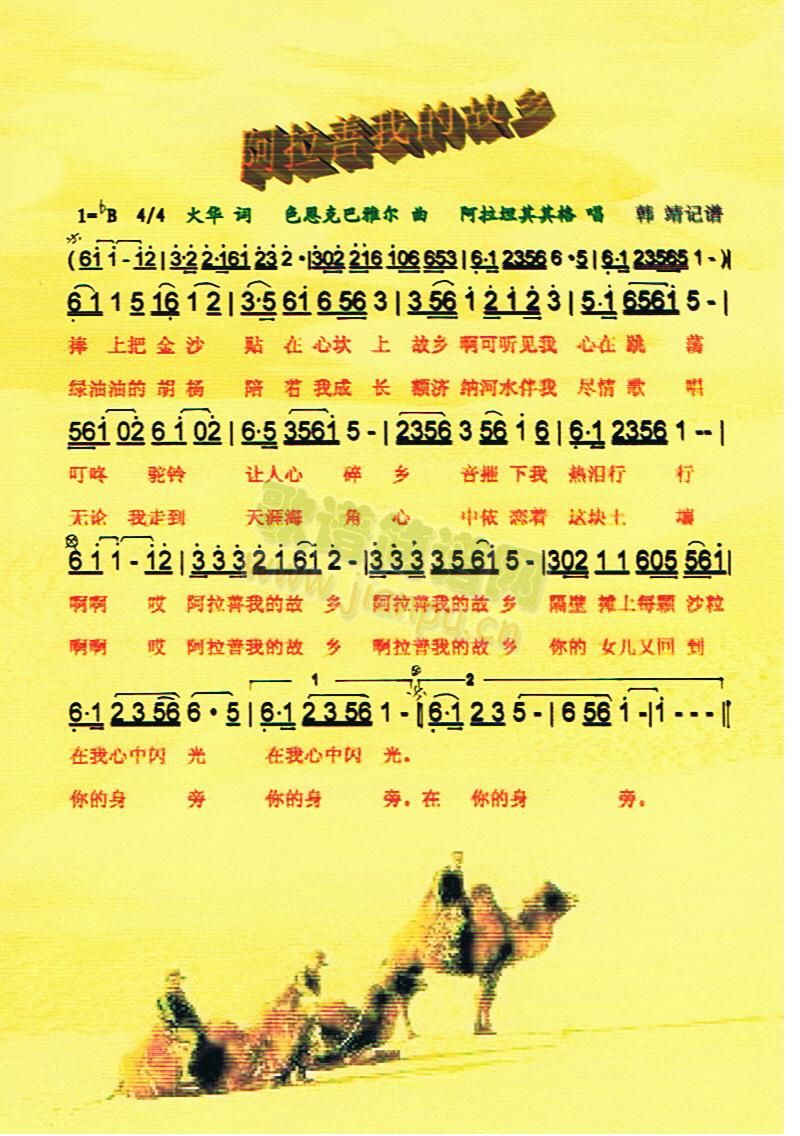 阿拉善我的故乡
1=♭B 4/4 火华 词 色恩克巴雅尔 曲 阿拉坦其其格 唱 韩 靖记谱
(6i i - i2 | 3·2 2·161 23 2· | 302 216 106 653 | 6·1 2356 6·5 | 6·1 23565 1 - )
6 i 1 5 16 1 2 | 3·5 6i 6 56 3 | 3 56 i 2 i 2 3 | 5·i 656i 5 - |
捧 上把 金 沙 贴 在 心坎 上 故乡 啊可听见我 心在 跳 荡
绿油油的 胡 杨 陪 着 我成 长 额济 纳河水伴我 尽情 歌 唱
56i 02 6 i 02 | 6·5 356i 5 - | 2356 3 56 i 6 | 6·1 2356 1 -- |
叮咚 驼铃 让人心 碎 乡 音摧 下我 热泪行 行
无论 我走到 天涯海 角 心 中依 恋着 这块土 壤
6 i i - i2 | 3 3 3 2 i 6i 2 - | 3 3 3 3 5 6i 5 - | 302 1 1 605 56i |
啊啊 哎 阿拉善我的故 乡 阿拉善我的故 乡 隔壁 滩上每颗 沙粒
啊啊 哎 阿拉善我的故 乡 啊拉善我的故 乡 你的 女儿又回 到
1 2
6·1 2 3 56 6·5 | 6·1 2 3 56 1 - 6·1 2 3 5 - | 6 56 i - | i - - -
在我心中闪 光 在我心中闪 光。
你的身 旁 你的身 旁。在 你的身 旁。
歌谱简谱网
www.jianpu.cn